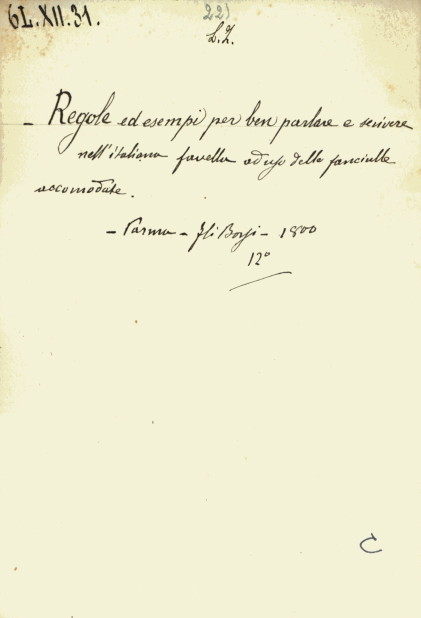 6L.XII.31.
22)
L.Z.
- Regole ed esempi per ben parlare e scrivere
nell'italiana favella ad uso delle fanciulle
accomodate.
- Parma - Fli Borsi - 1800
12°
C